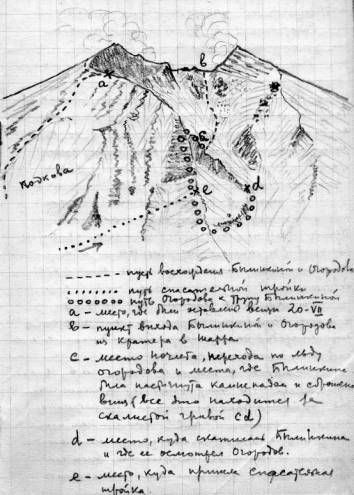 a
b
c
e
d
подкова
---- - путь восхождения Былинкиной и Огородова
.... - путь спасательной тройки
ооооооо - путь Огородова к трупу Былинкиной
a - место, где были оставлены вещи 20-VII
b - пункт выхода Былинкиной и Огородова
из кратера в
c - место ночлега, перехода по льду
Огородова и места, где Былинкина
была настигнута камнепадом и сброшена
вниз (все это находится за
скалистой гривой cd)
d - место, куда скатилась Былинкина
и где её осмотрел Огородов.
e - место, куда пришла спасательная
тройка.